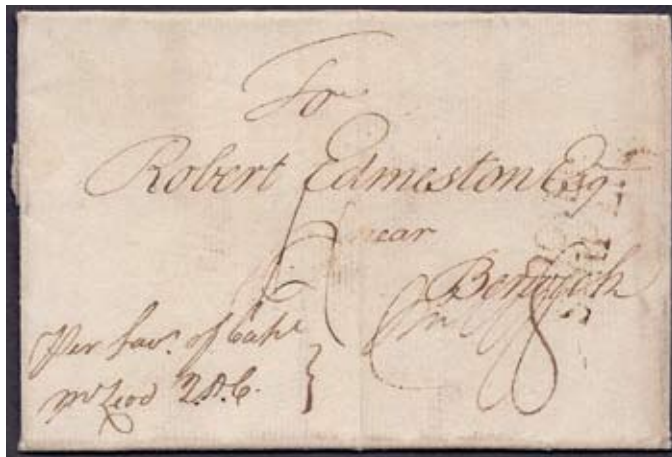 For
Robert Edmeston Esqr
near
Berwick
Per favr. of Capt
McLeod Q.D.C.